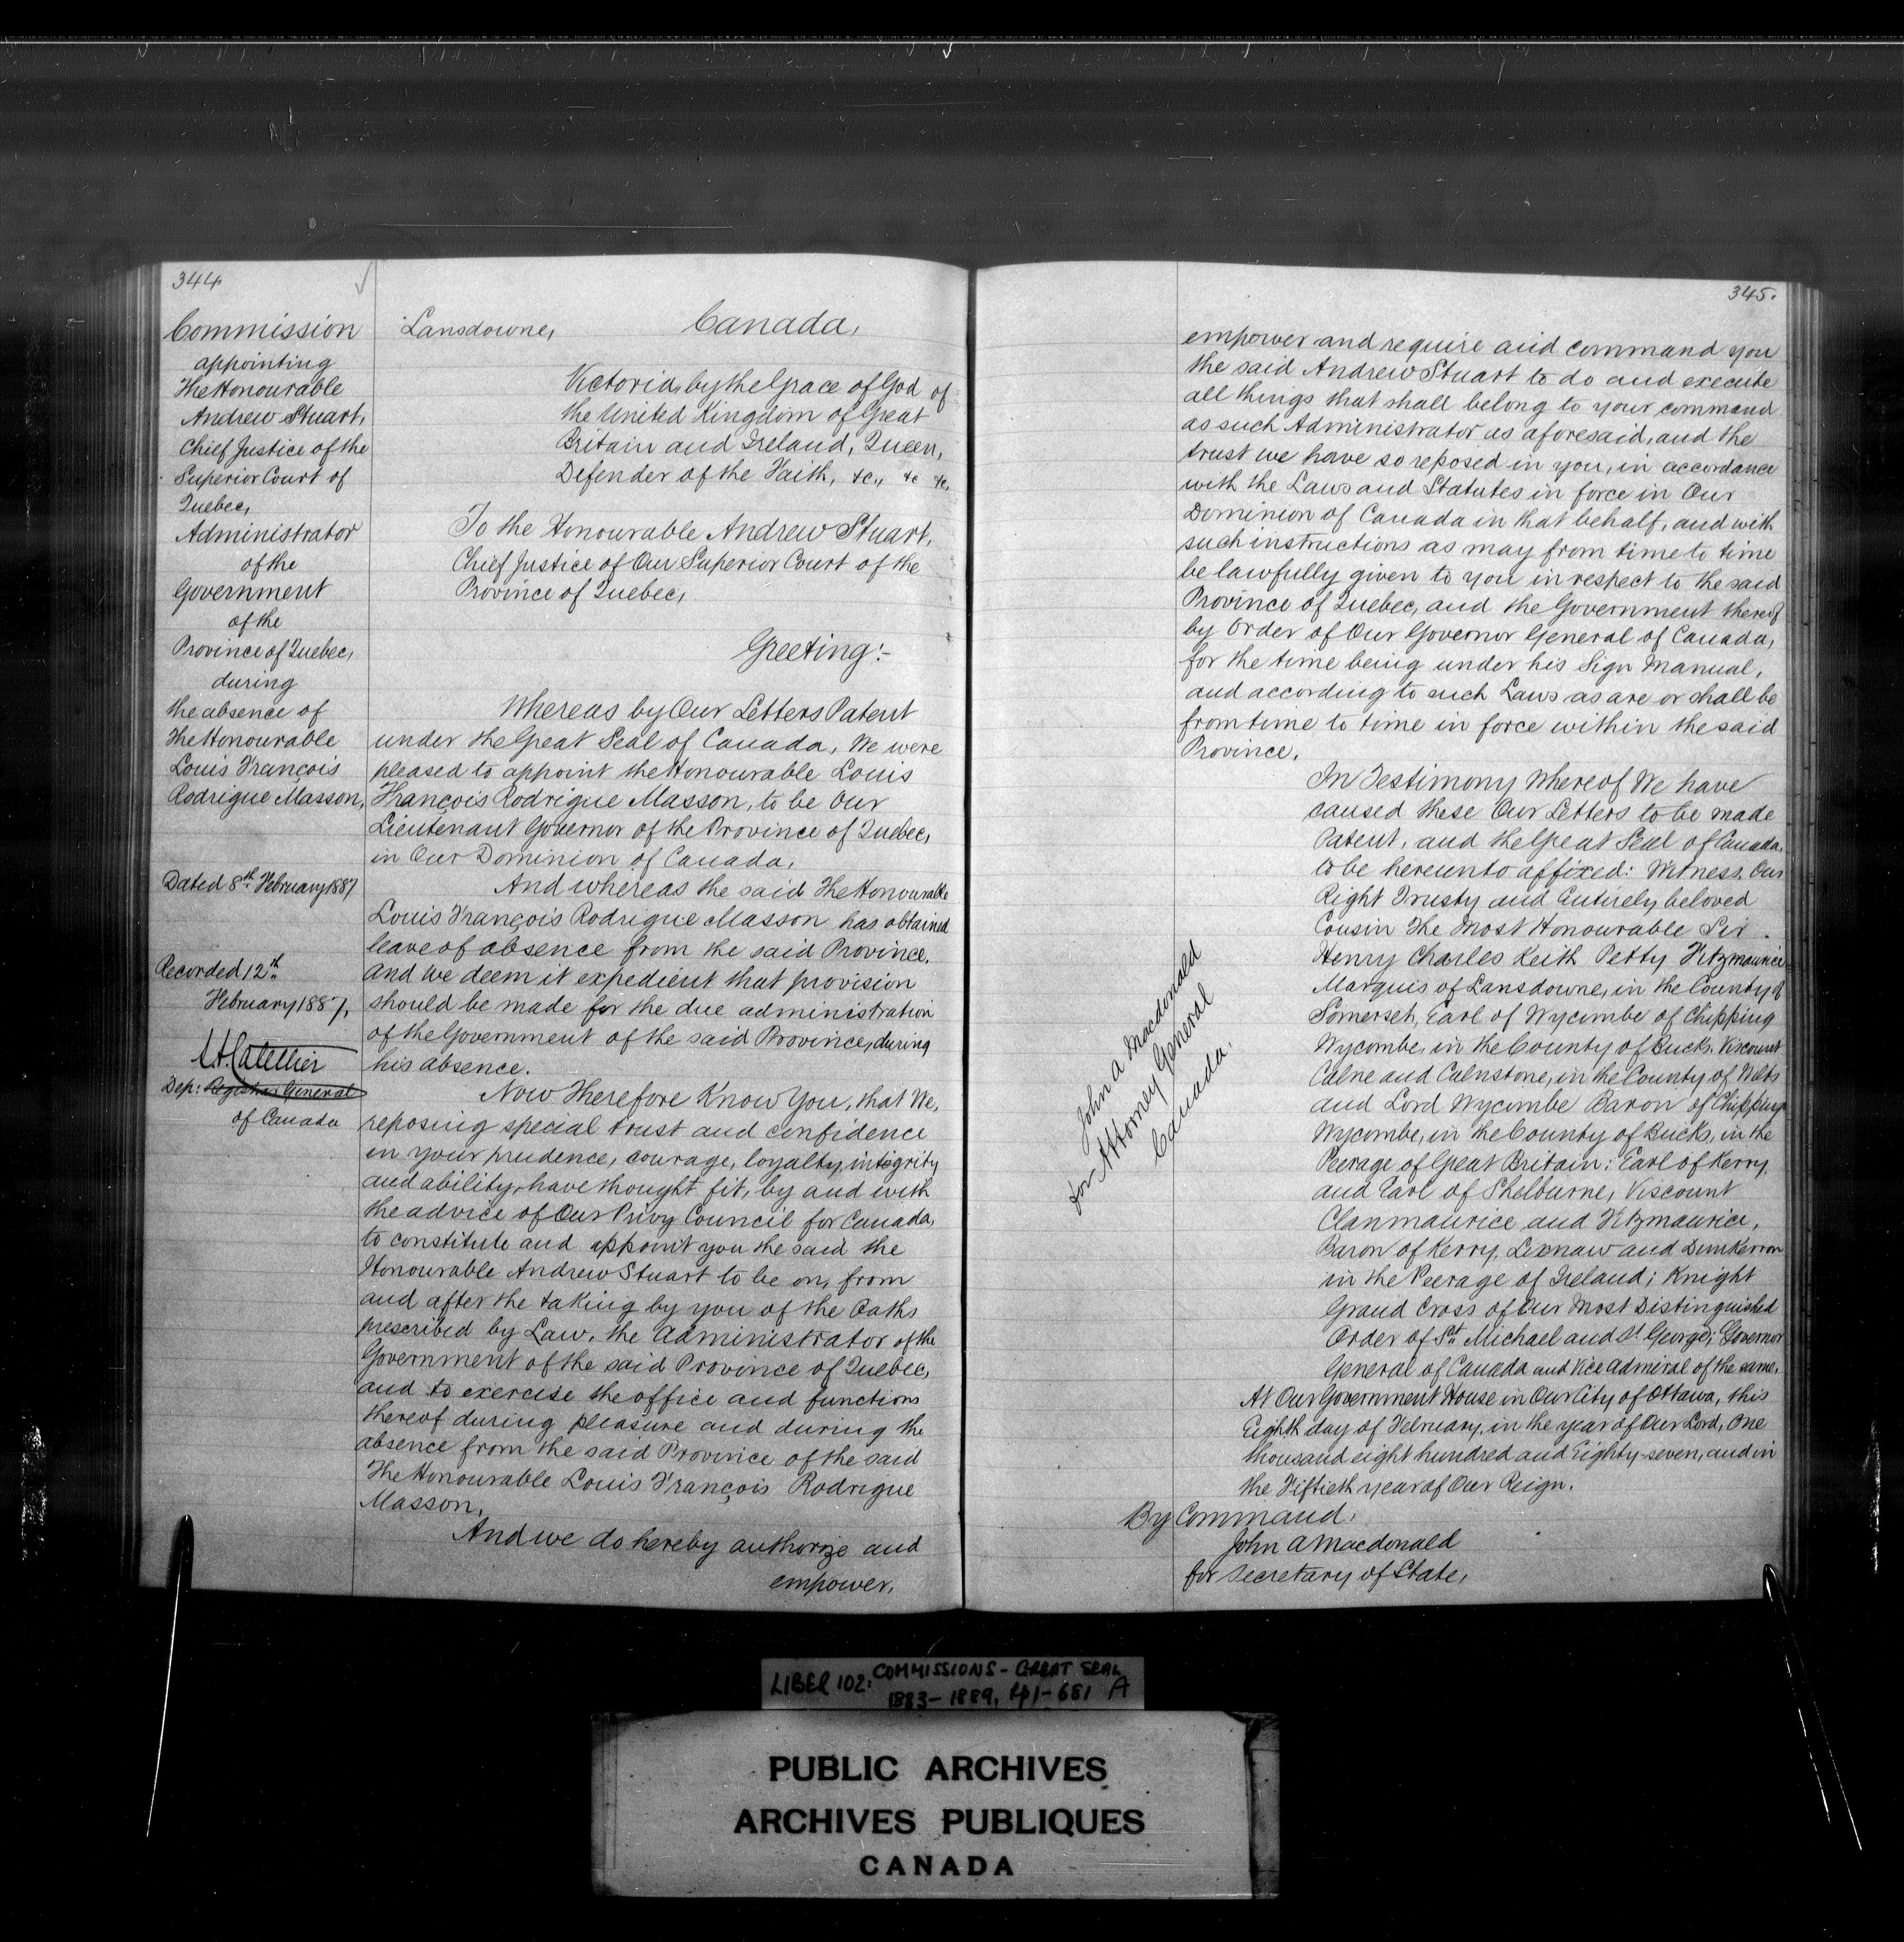 344
Commission
appointing
The Honourable
Andrew Stuart,
Chief Justice of the
Superior Court of
Quebec,
Administrator
of the
Government
of the
Province of Quebec,
during
the absence of
The Honourable
Louis François
Rodrigue Masson,
Dated 8th February 1887
Recorded 12th
February 1887,
Dep: Registrar General
of Canada
Lansdowne, Canada,
Victoria, by the Grace of God of
the United Kingdom of Great
Britain and Ireland, Queen,
Defender of the Faith, &c., &c &c,
To the Honourable Andrew Stuart,
Chief Justice of Our Superior Court of the
Province of Quebec,
Greeting:-
Whereas by Our Letters Patent
under the Great Seal of Canada, We were
pleased to appoint the Honourable Louis
François Rodrigue Masson, to be Our
Lieutenant Governor of the Province of Quebec,
in Our Dominion of Canada,
And whereas the said The Honourable
Louis François Rodrigue Masson has obtained
leave of absence from the said Province.
And we deem it expedient that provision
should be made for the due administration
of the Government of the said Province, during
his absence.
Now Therefore Know You, that We,
reposing special trust and confidence
in your prudence, courage, loyalty, integrity
and ability, have thought fit, by and with
the advice of Our Privy Council for Canada,
to constitute and appoint you the said the
Honourable Andrew Stuart to be on, from
and after the taking by you of the Oaths
prescribed by Law, the Administrator of the
Government of the said Province of Quebec,
and to exercise the office and functions
thereof during pleasure and during the
absence from the said Province of the said
The Honourable Louis François Rodrigue
Masson.
And we do hereby authorize and
empower,
345.
empower and require and command you
the said Andrew Stuart to do and execute
all things that shall belong to your command
as such Administrator as aforesaid, and the
trust we have so reposed in you, in accordance
with the Laws and Statutes in force in Our
Dominion of Canada in that behalf, and with
such instructions as may from time to time
be lawfully given to you in respect to the said
Province of Quebec, and the Government thereof
by Order of Our Governor General of Canada,
for the time being under his Sign Manual,
and according to such Laws as are or shall be
from time to time in force within the said
Province.
In Testimony Whereof We have
caused these Our Letters to be made
Patent, and the Great Seal of Canada,
to be hereunto affixed: Witness, Our
Right Trusty and Entirely beloved
Cousin The Most Honourable Sir
Henry Charles Keith Petty Fitzmaurice
Marquis of Lansdowne, in the County of
Somerset, Earl of Wycombe of Chipping
Wycombe, in the County of Bucks, Viscount
Calne and Calnstone, in the County of Wilts
and Lord Wycombe Baron of Chipping
Wycombe, in the County of Bucks, in the
Peerage of Great Britain: Earl of Kerry,
and Earl of Shelburne, Viscount
Clanmaurice and Fitzmaurice,
Baron of Kerry, Lixnaw and Dunkerron
in the Peerage of Ireland; Knight
Grand Cross of Our Most Distinguished
Order of St. Michael and St George; Governor
General of Canada and Vice Admiral of the same.
At Our Government House in Our City of Ottawa, this
Eighth day of February, in the year of Our Lord, One
thousand eight hundred and Eighty-seven, and in
the Fiftieth year of Our Reign.
By Command,
John A Macdonald
for Secretary of State,
John A Macdonald
for Attorney General
Canada.
LIBER 102: COMMISSIONS - GREAT SEAL
1883-1889, 41-681 A
PUBLIC ARCHIVES
ARCHIVES PUBLIQUES
CANADA